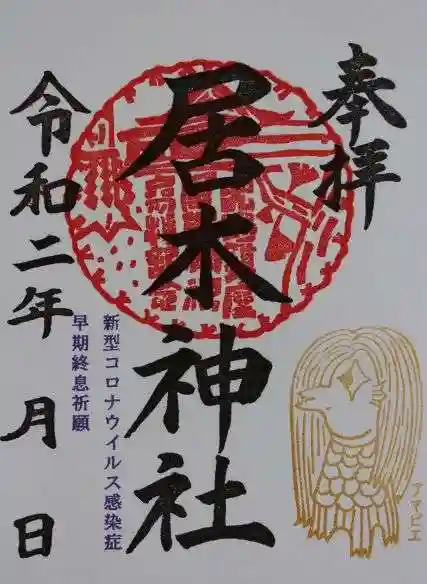 奉拝
居木神社
新型コロナウイルス感染症
早期終息祈願
令和二年 月 日
アマビエ